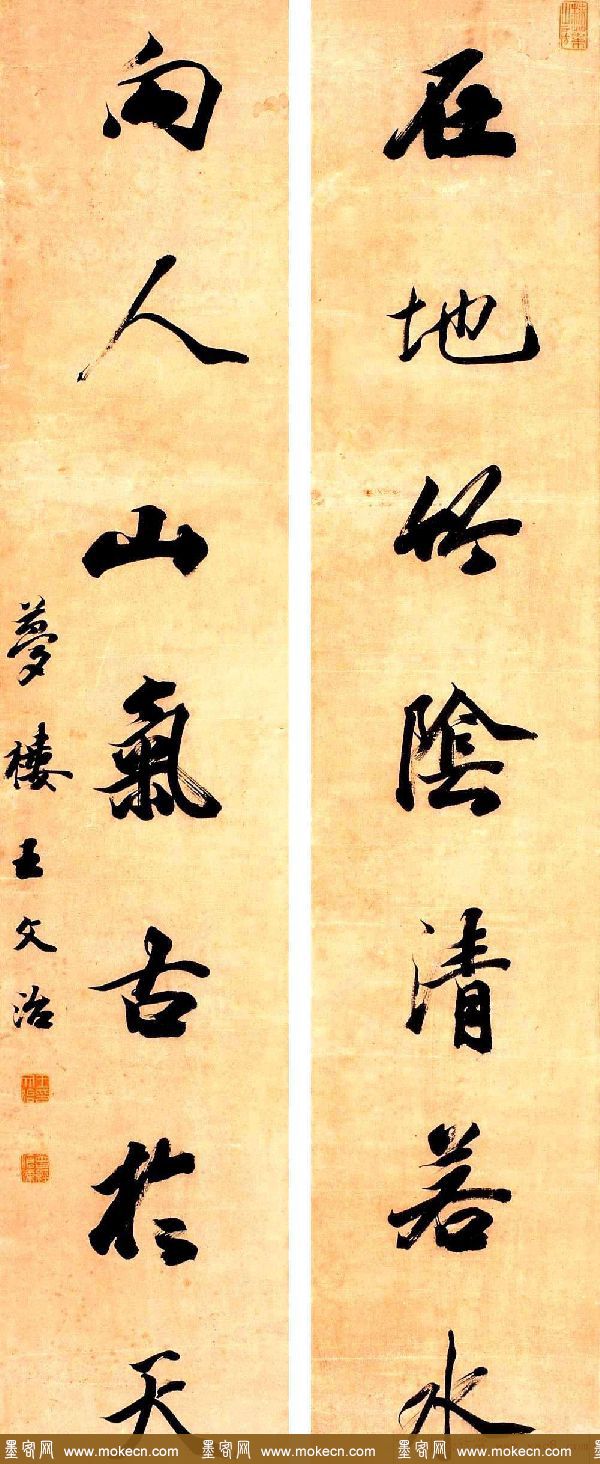 在地竹陰清若水
向人山氣古於天
夢樓王文治
墨客网 www.mokecn.com 墨客网 www.mokecn.com 墨客网 www.mokecn.com